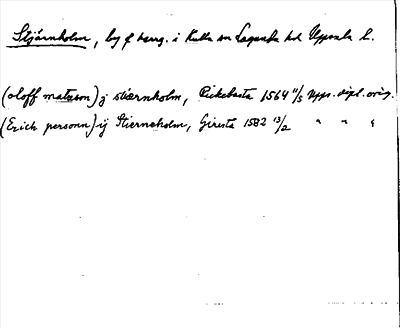 Stjärnholm, by f herrg. i Kulla sn Lagunda hd Uppsala l.
(oloff matzson) j stiærnholm, Rickebasta 1564 11/5 Upps. dipl. orig.
(Erich personn) ij Stierneholm, Giresta 1582 13/2 " " "